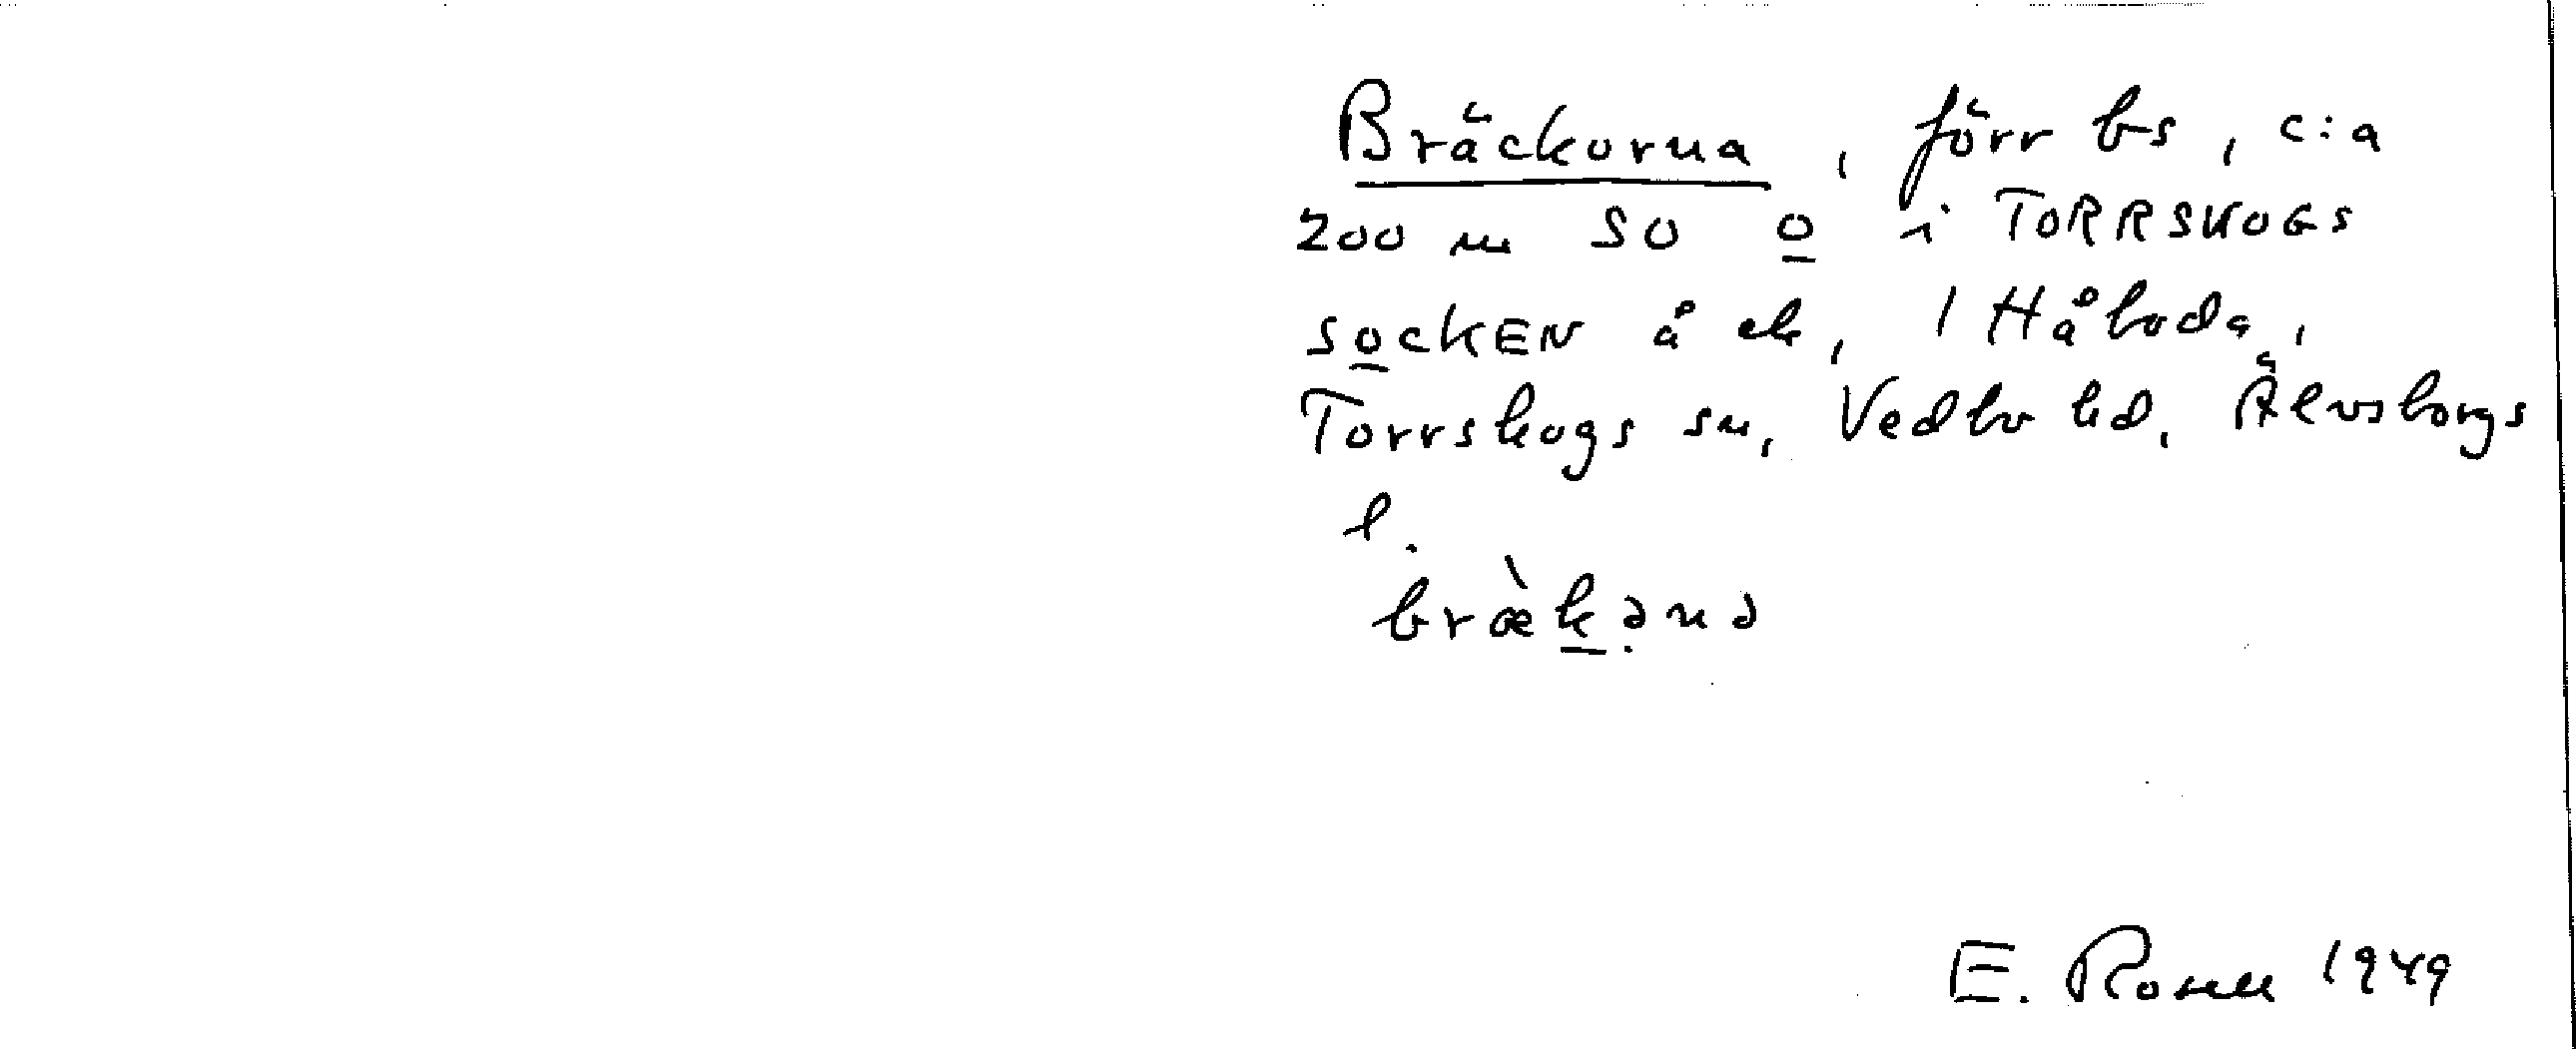 Bräckorna, förr bs, c:a
200 m SO o i TORRSKOGS
SOCKEN å ek, 1 Håbada,
Torrskogs sn, Vedbo hd, Älvsborgs
l.
bræ̀kənə
E. Rosell 1949